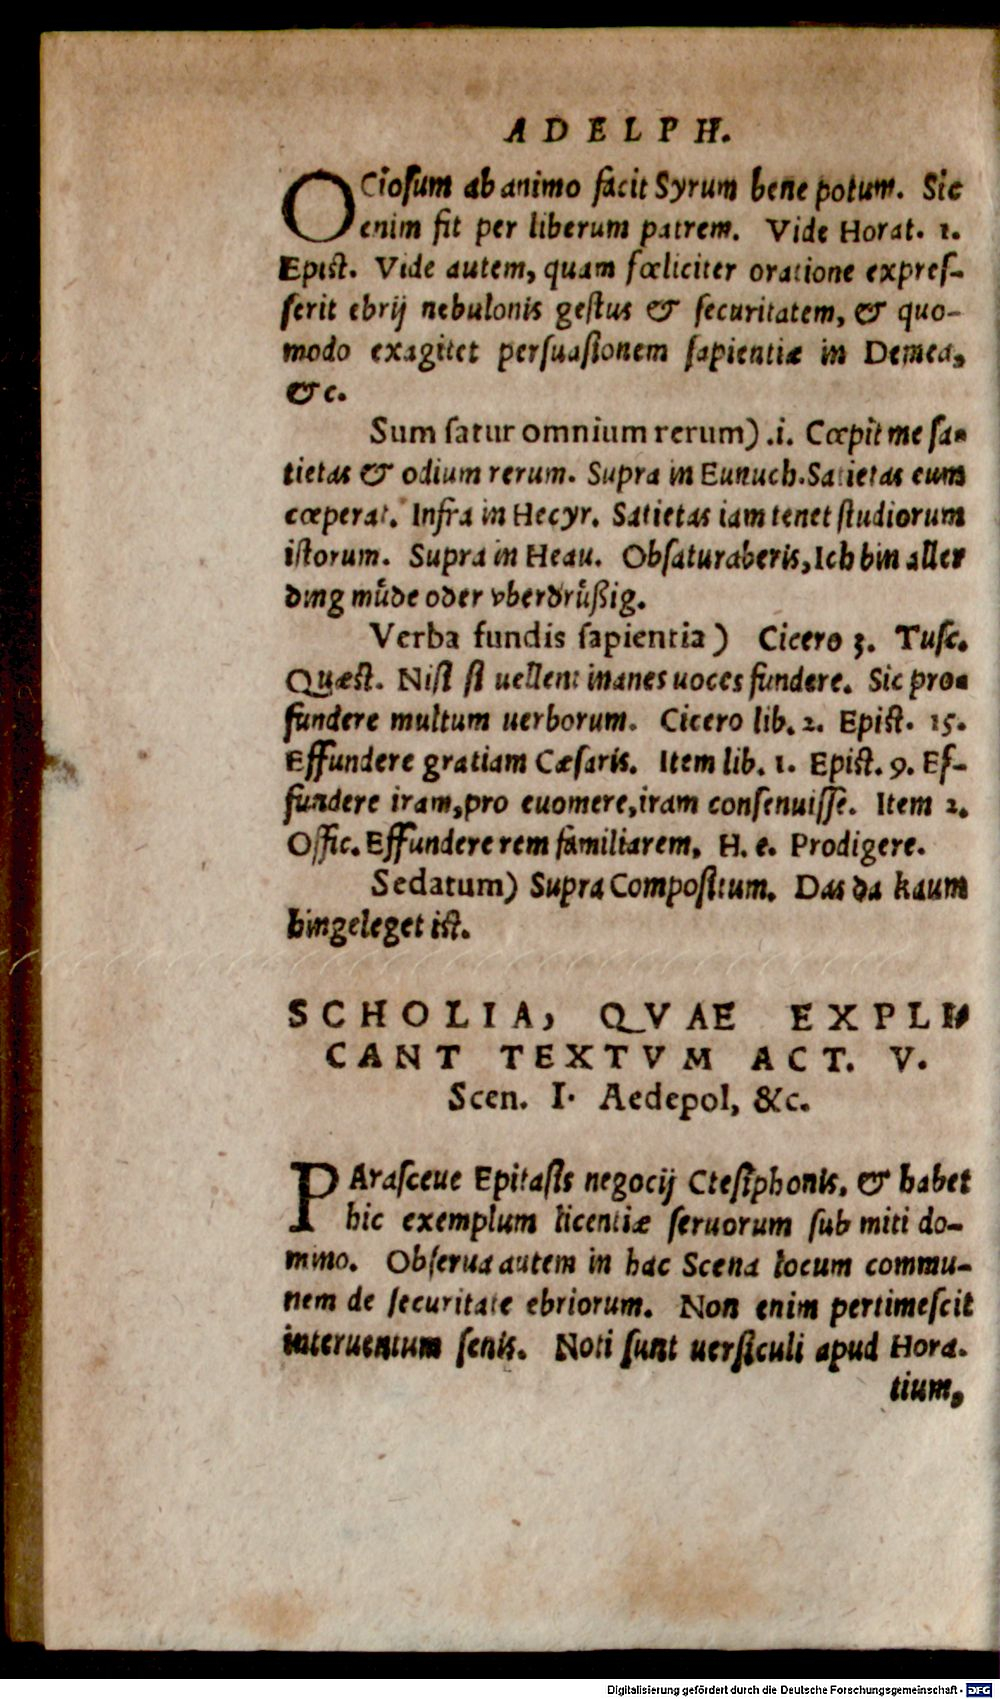 ADELPH.
OCioſum ab animo facit Syrum bene potum. Sic
enim fit per liberum patrem. Vide Horat. 1.
Epiſt. Vide autem, quam fœliciter oratione expreſ-
ſerit ebrij nebulonis geſtus & ſecuritatem, & quo-
modo exagitet perſuaſionem ſapientiæ in Demea,
&c.
Sum ſatur omnium rerum) .i. Cœpit me ſa-
tietas & odium rerum. Supra in Eunuch. Satietas eum
cœperat. Infra in Hecyr. Satietas iam tenet ſtudiorum
iſtorum. Supra in Heau. Obſaturaberis, Ich bin aller
ding můde oder vberdrůßig.
Verba fundis ſapientia) Cicero 3. Tuſc.
Quæſt. Niſi ſi uellent inanes uoces fundere. Sic pro-
fundere multum uerborum. Cicero lib. 2. Epiſt. 15.
Effundere gratiam Cæſaris. Item lib. 1. Epiſt. 9. Ef-
fundere iram, pro euomere, iram conſenuiſſe. Item 2.
Offic. Effundere rem familiarem, H. e. Prodigere.
Sedatum) Supra Compoſitum. Das da kaum
hingeleget iſt.
SCHOLIA, QVAE EXPLI-
CANT TEXTVM ACT. V.
Scen. I. Aedepol, &c.
PAraſceue Epitaſis negocij Cteſiphonis, & habet
hic exemplum licentiæ ſeruorum ſub miti do-
mino. Obſerua autem in hac Scena locum commu-
nem de ſecuritate ebriorum. Non enim pertimeſcit
interuentum ſenis. Noti ſunt uerſiculi apud Hora-
tium,
Digitalisierung gefördert durch die Deutsche Forschungsgemeinschaft - DFG